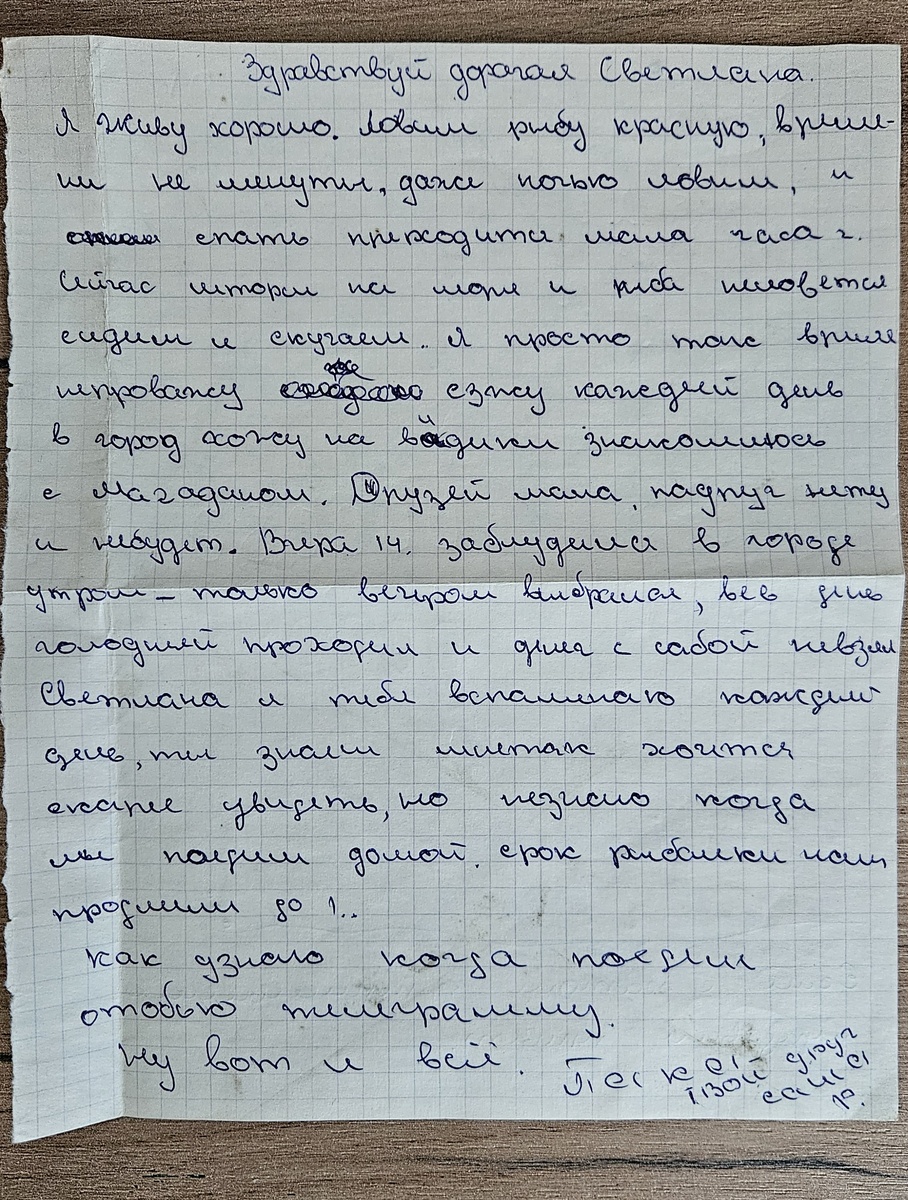 Здравствуй дорогая Светлана.
Я живу хорошо. Ловим рыбу красную, време-
ни не минуты, даже ночью ловим, и
спать преходится мала часа 2.
Сейчас шторм на море и рыба неловется
сидим и скучаем. Я просто так время
непроважу езжу каждей день
в город хожу на видики знакомлюсь
с Магаданом. Друзей мала, падруг нету
и небудет. Вчера 14. заблудился в городе
утром – только вечером выбрался, весь день
голодней проходил и денег с сабой невзял
Светлана я тебя вспаминаю каждей
день, ты знаеш мнетак хочется
скарее увидеть, но незнаю когда
мы поедим домой. срок рыбалки нам
продлили до 1..
как узнаю когда поедим
отобью телеграмму.
Ну вот и всё. Пока
твой друг
саша
Р.